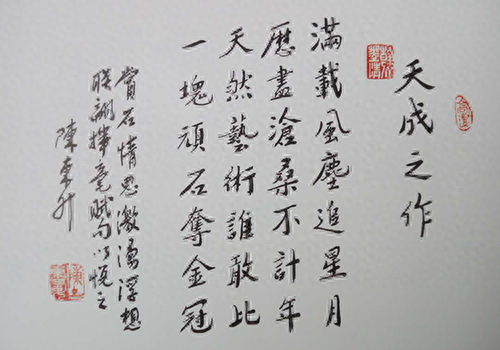 天成之作
滿載風塵追星月
歷盡滄桑不計年
天然藝術誰敢比
一塊頑石奪金冠
賞石情思激湧浮想
聯翩揮毫賦句以悅之
陳東升